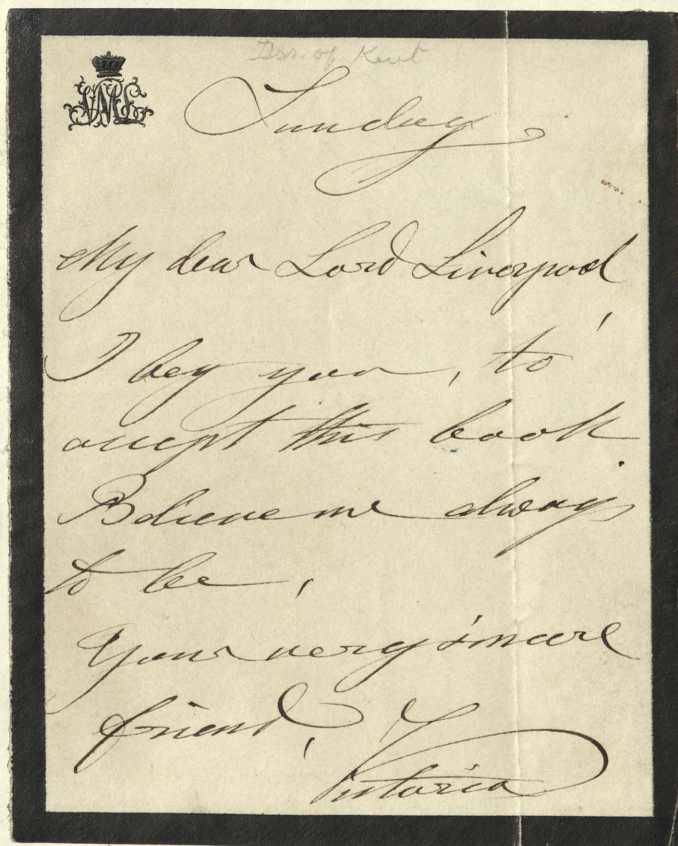 Dss. of Kent
Sunday
My dear Lord Liverpool,
I beg you, to
accept this book.
Believe me always
to be,
Your very sincere
friend,
Victoria